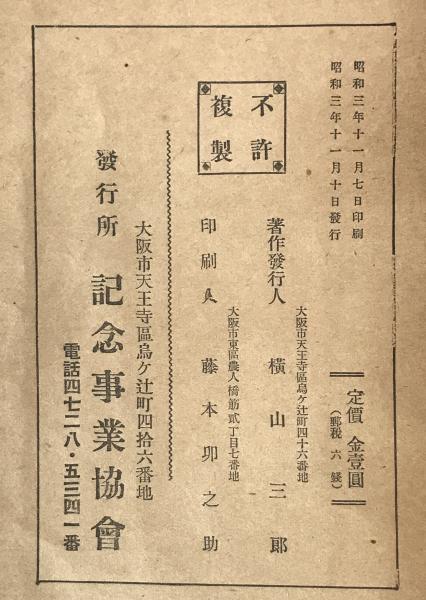 昭和三年十一月七日印刷
昭和三年十一月十日發行
定價 金壹圓
(郵税 六錢)
不許
複製
大阪市天王寺區烏ケ辻町四十六番地
著作發行人 橫山三郎
大阪市東區農人橋筋貳丁目七番地
印刷人 藤本卯之助
大阪市天王寺區烏ケ辻町四拾六番地
發行所 記念事業協會
電話四七二八・五三四一番